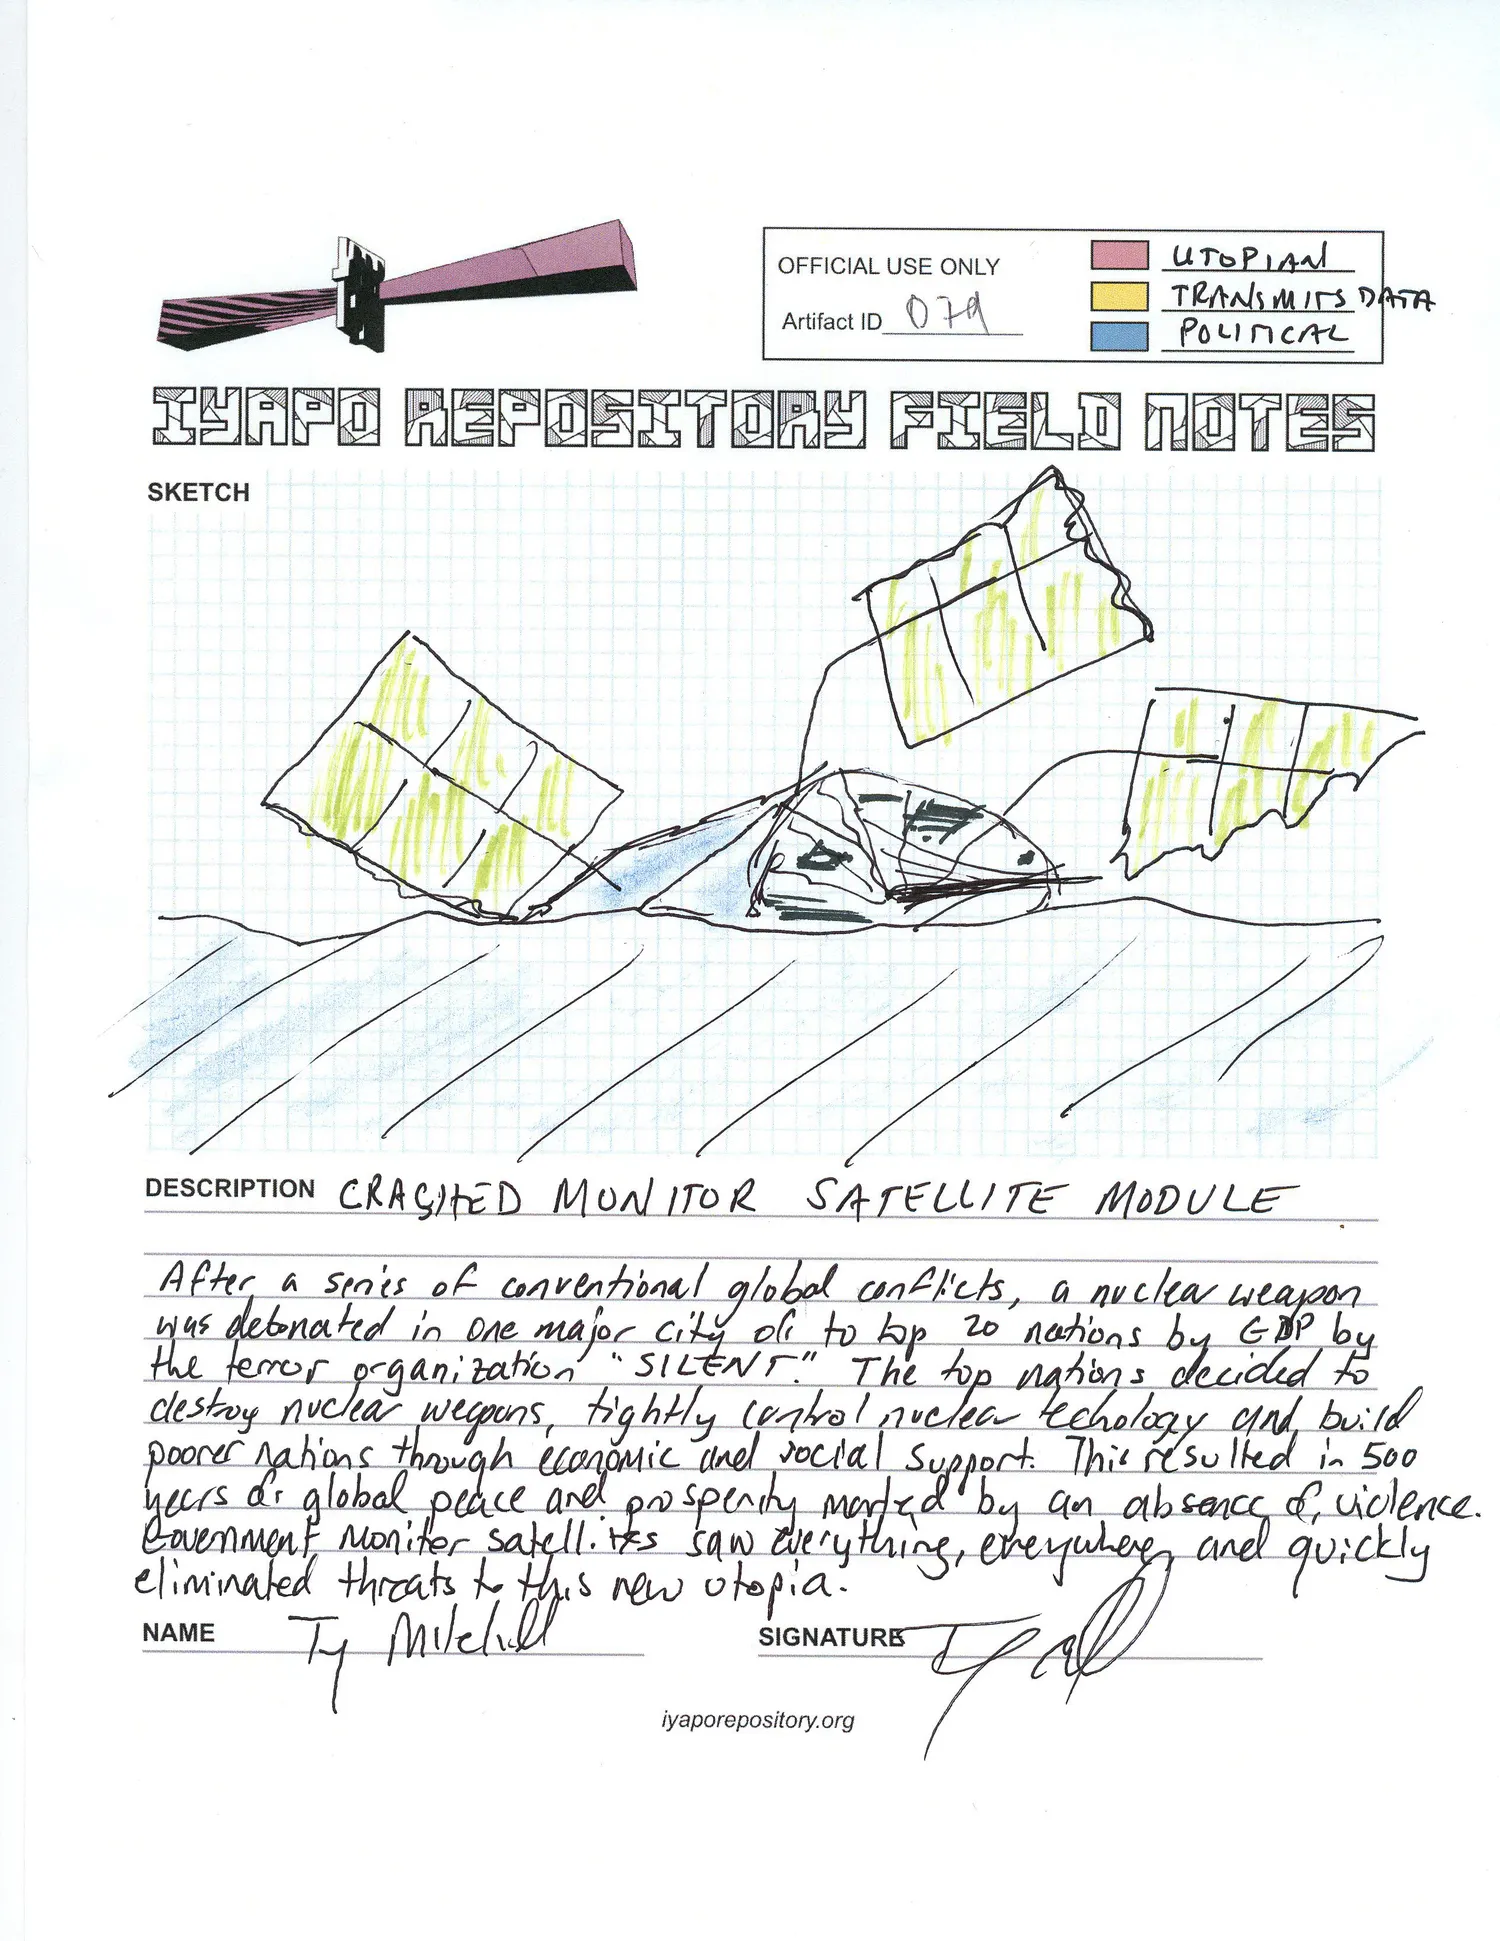 OFFICIAL USE ONLY
Artifact ID 079
UTOPIAN
TRANSMITS DATA
POLITICAL
IYAPO REPOSITORY FIELD NOTES
SKETCH
DESCRIPTION CRASHED MONITOR SATELLITE MODULE
After a series of conventional global conflicts, a nuclear weapon
was detonated in one major city of to top 20 nations by GDP by
the terror organization "SILENT." The top nations decided to
destroy nuclear weapons, tightly control nuclear techology and build
poorer nations through economic and social support. This resulted in 500
years of global peace and prosperity marked by an absence of violence.
Government monitor satellites saw everything, everywhere and quickly
eliminated threats to this new utopia.
NAME Ty Mitchell
SIGNATURE
iyaporepository.org